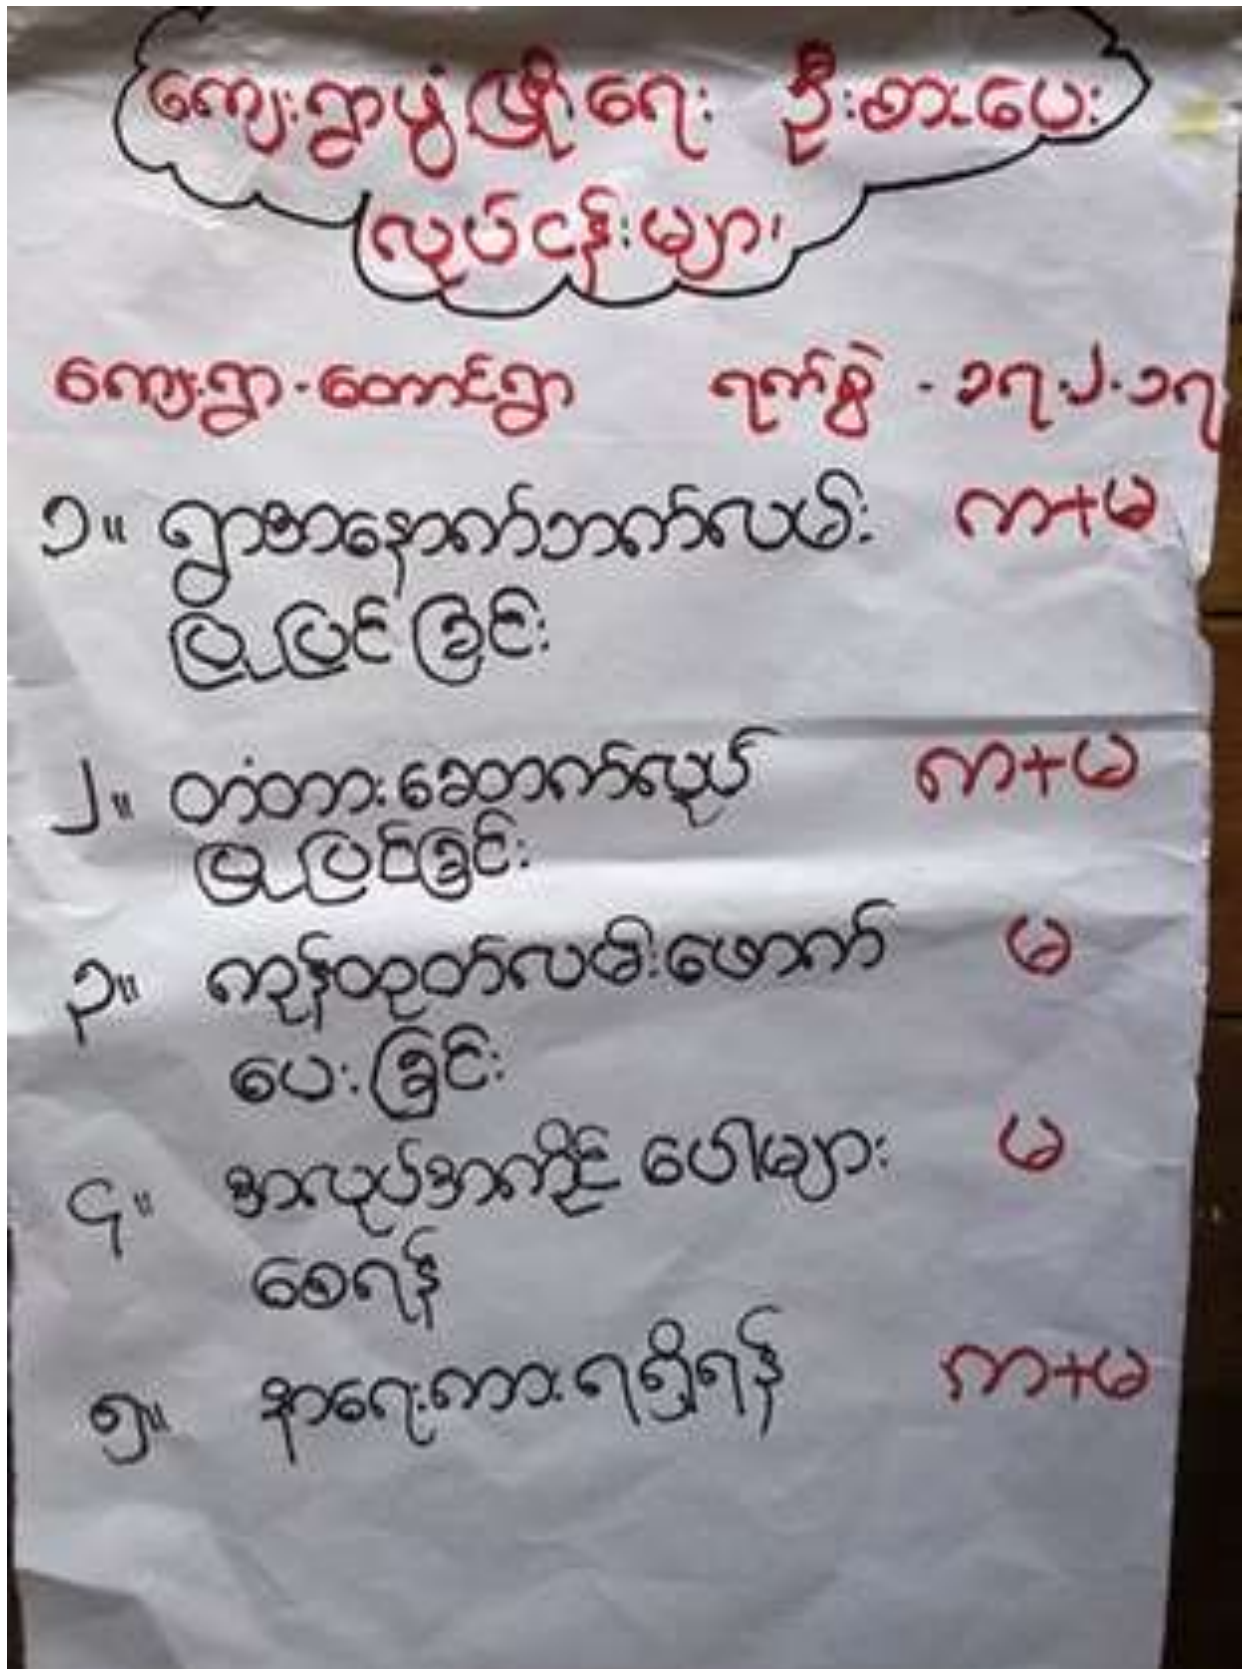 ကျေးရွာဖွံ့ဖြိုးရေး ဦးစားပေး
လုပ်ငန်းများ
ကျေးရွာ - တောင်ရွာ ရက်စွဲ - ၁၇.၂.၁၇
၁။ ရွာအနောက်ဘက်လမ်း က+မ
ပြုပြင်ခြင်း
၂။ တံတားဆောက်လုပ် က+မ
ပြုပြင်ခြင်း
၃။ ကုန်ထုတ်လမ်းဖောက် မ
ပေးခြင်း
၄။ အလုပ်အကိုင် ပေါများ မ
စေရန်
၅။ နာရေးကားရရှိရန် က+မ